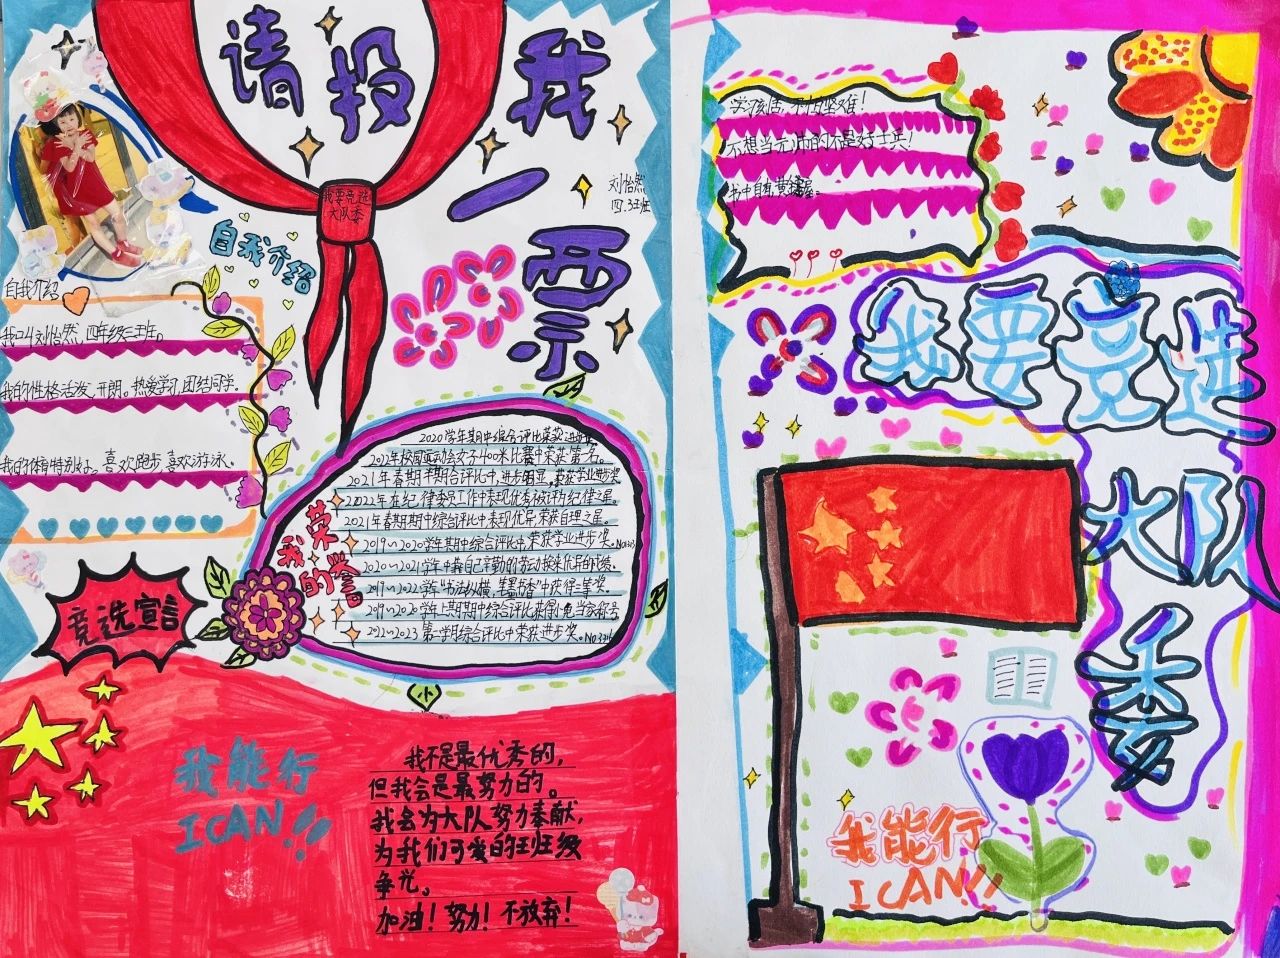 请投我一票
刘怡然
四.3班
我要竞选
大队委
自我介绍
自我介绍
我叫刘怡然,四年级三班。
我的性格活发,开朗。热爱学习,团结同学。
我的体育特别好。喜欢跑步,喜欢游泳。
我的荣誉
2020学年期中综合评比荣获进步奖
2022年校园运动会女子400米比赛中荣获第 名。
2021年春期半期综合评比中,进步明显,荣获学业进步奖
2022年在纪律委员工作中表现优秀被评为纪律之星。
2021年春期期中综合评比中表现优异,荣获自理之星。
2019~2020学年期中综合评比中荣获学业进步奖。
2020~2021学年中靠自己辛勤的劳动换来优异的成绩。
2019~2022学年"书法纵横,笔墨书香"中获得三等奖。
2019~2020学年上期期中综合评比获得小免当家称号
2022~2023第二学月综合评比中荣获进步奖。
小
竞选宣言
我能行
I CAN!!
我不是最优秀的,
但我会是最努力的。
我会为大队努力奉献,
为我们可爱的班级
争光。
加油!努力!不放弃!
不想当元帅的不是好士兵!
书中自有黄金屋。
我要竞选
大队
委
我能行
I CAN!!